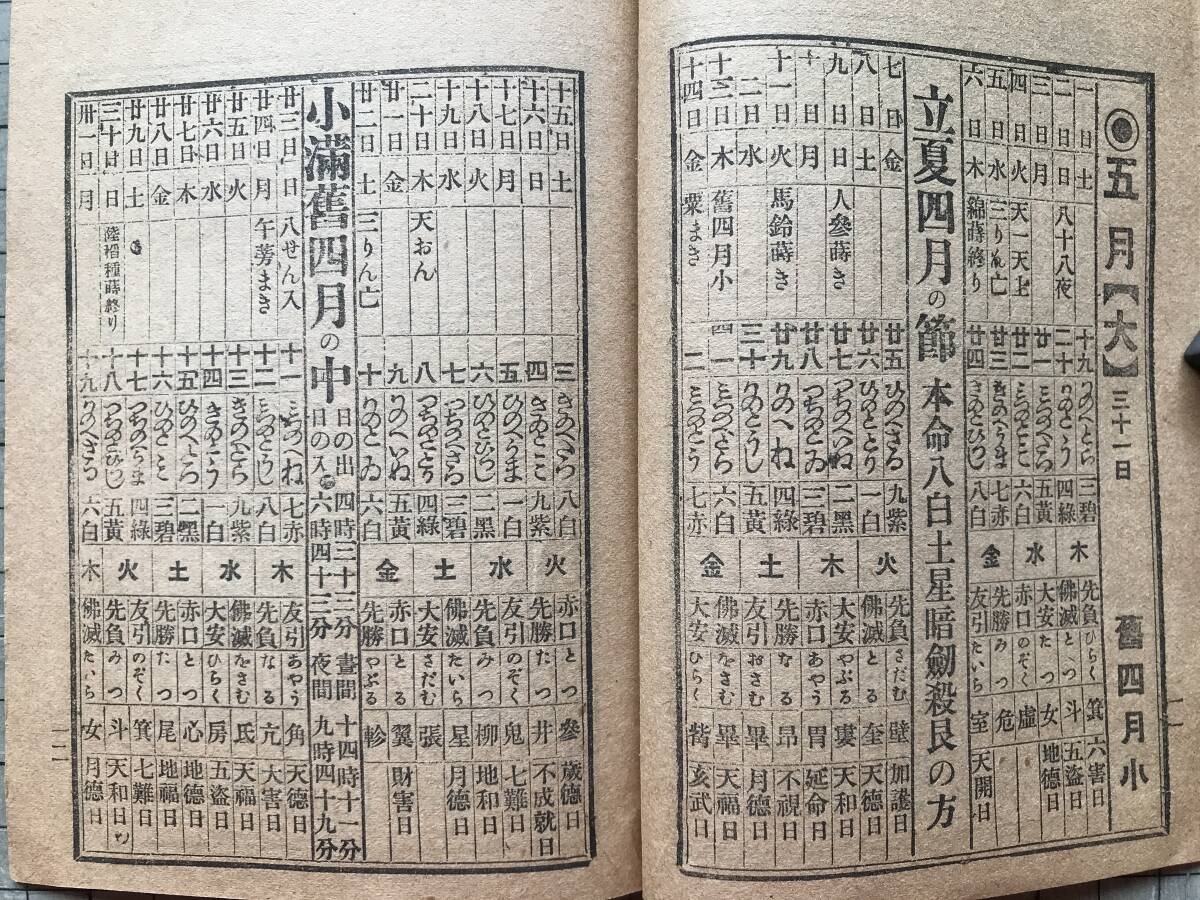 ◉五月【大】三十一日 舊四月小
一日 土 十九 三碧 木 先負 ひらく 箕 六害日
二日 日 八十八夜 二十 四綠 佛滅 とつ 斗 五盜日
三日 月 廿一 五黃 水 大安 たつ 女 地德日
四日 火 天一天上 廿二 六白 赤口 のぞく 虛
五日 水 三りん亡 廿三 七赤 金 先勝 みつ 危
六日 木 綿蒔終り 廿四 八白 友引 たいら 室 天開日
立夏四月の節 本命八白土星暗劍殺艮の方
七日 金 廿五 ひのへさる 九紫 火 先負 さだむ 壁 加護日
八日 土 廿六 ひのととり 一白 佛滅 とる 奎 天德日
九日 日 人參蒔き 廿七 つちのへいぬ 二黑 木 大安 やぶる 婁 天和日
十日 月 廿八 つちのとゐ 三碧 赤口 あやう 胃 延命日
十一日 火 馬鈴蒔き 廿九 かのへね 四綠 土 先勝 なる 昴 不視日
十二日 水 三十 かのとうし 五黃 友引 おさむ 畢 月德日
十三日 木 舊四月小 一 六白 金 佛滅 をさむ 畢 天福日
十四日 金 粟まき 二 七赤 大安 ひらく 觜 亥武日
一一
十五日 土 三 きのへたつ 八白 火 赤口 とつ 參 歲德日
十六日 日 四 きのとみ 九紫 先勝 たつ 井 不成就日
十七日 月 五 ひのへうま 一白 水 友引 のぞく 鬼 七難日
十八日 火 六 ひのとひつじ 二黑 先負 みつ 柳 地和日
十九日 水 七 つちのへさる 三碧 土 佛滅 たいら 星 月德日
二十日 木 天おん 八 つちのととり 四綠 大安 さだむ 張
廿一日 金 九 かのへいぬ 五黃 金 赤口 とる 翼 財害日
廿二日 土 三りん亡 十 かのとゐ 六白 先勝 やぶる 軫
小滿舊四月の中 日の出 四時三十二分 晝間 十四時十一分
日の入 六時四十三分 夜間 九時四十九分
廿三日 日 八せん入 十一 みづのへね 七赤 木 友引 あやう 角 天德日
廿四日 月 午蒡まき 十二 みづのとうし 八白 先負 なる 亢 大害日
廿五日 火 十三 きのへとら 九紫 水 佛滅 をさむ 氐 天福日
廿六日 水 十四 きのとう 一白 大安 ひらく 房 五盜日
廿七日 木 十五 ひのへたつ 二黑 土 赤口 とつ 心 地德日
廿八日 金 十六 三碧 先勝 たつ 尾 地福日
廿九日 土 十七 つちのへうま 四綠 火 友引 のぞく 箕 七難日
三十日 日 陸稻種蒔終り 十八 つちのとひつじ 五黃 先負 みつ 斗 天和日
卅一日 月 十九 かのへさる 六白 木 佛滅 たいら 女 月德日
一二